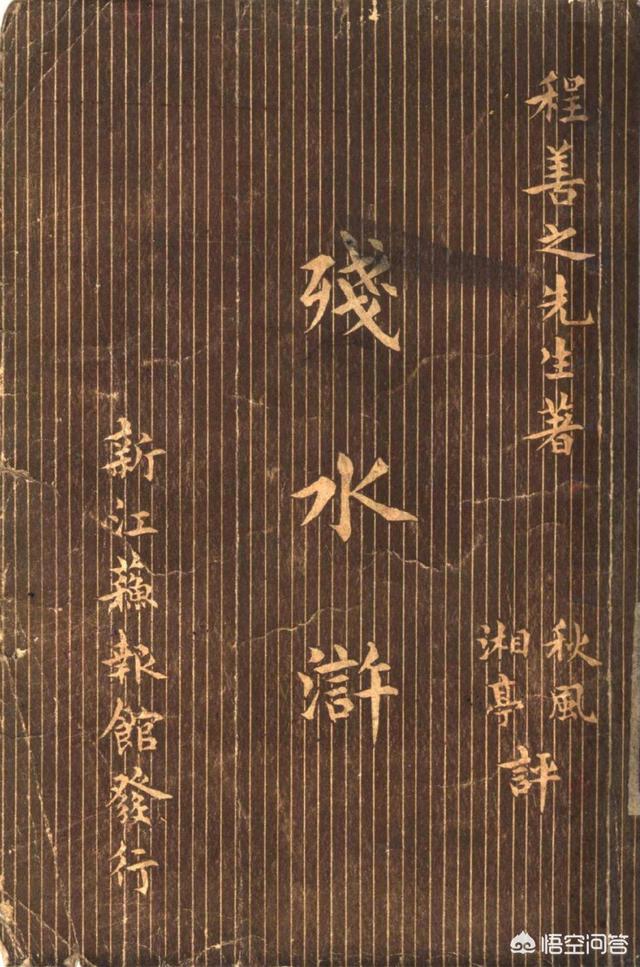 程善之先生著
秋風
湘亭
評
殘水滸
新江蘇報館發行
悟空问答